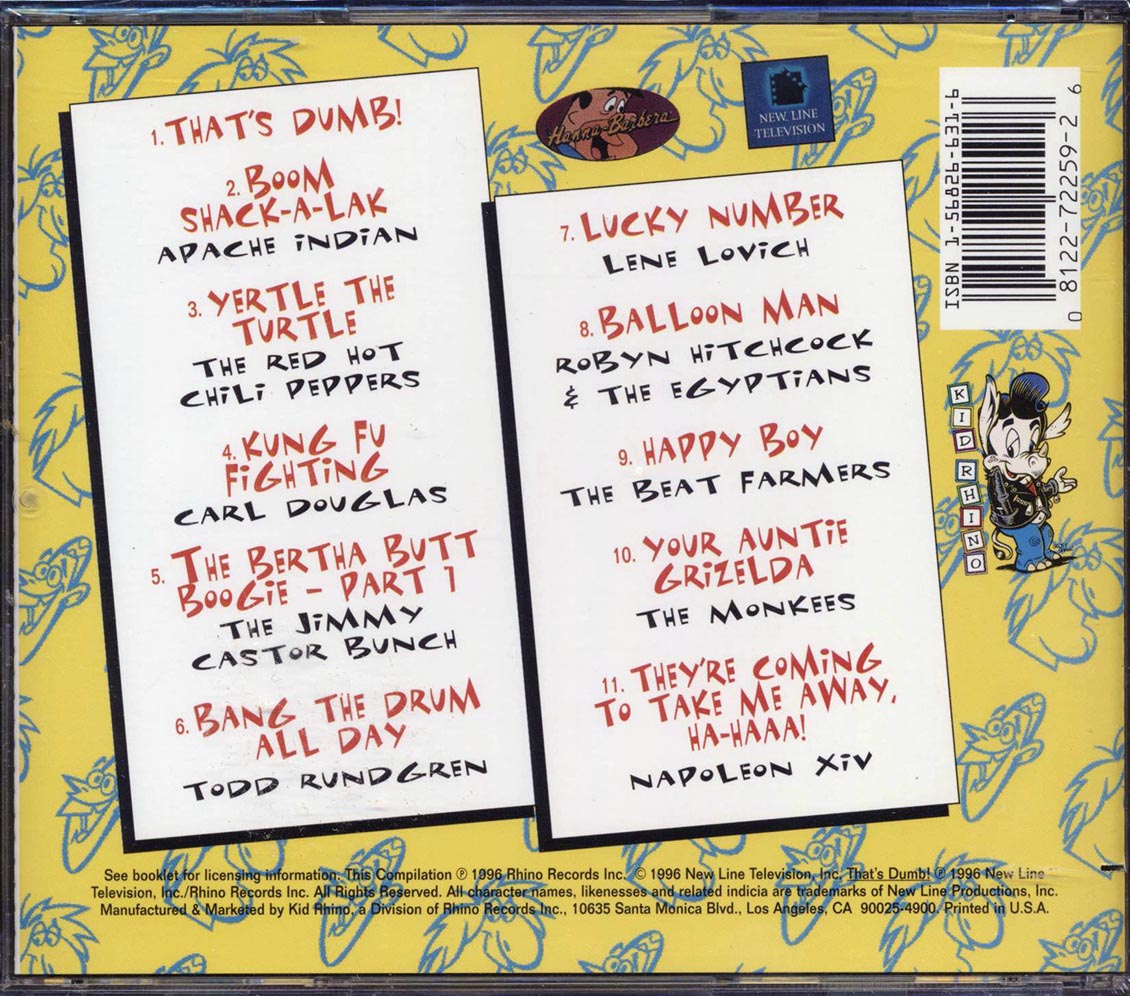 1. THAT'S DUMB!
2. BOOM
SHACK-A-LAK
APACHE INDIAN
3. YERTLE THE
TURTLE
THE RED HOT
CHILI PEPPERS
4. KUNG FU
FIGHTING
CARL DOUGLAS
5. THE BERTHA BUTT
BOOGIE - PART 1
THE JIMMY
CASTOR BUNCH
6. BANG THE DRUM
ALL DAY
TODD RUNDGREN
Hanna-Barbera
NEW LINE
TELEVISION
7. LUCKY NUMBER
LENE LOVICH
8. BALLOON MAN
ROBYN HITCHCOCK
& THE EGYPTIANS
9. HAPPY BOY
THE BEAT FARMERS
10. YOUR AUNTIE
GRIZELDA
THE MONKEES
11. THEY'RE COMING
TO TAKE ME AWAY,
HA-HAAA!
NAPOLEON XIV
ISBN 1-56826-631-6
0 8122-72259-2 6
KID RHINO
See booklet for licensing information. This Compilation ℗ 1996 Rhino Records Inc. © 1996 New Line Television, Inc. That's Dumb! ℗ 1996 New Line
Television, Inc./Rhino Records Inc. All Rights Reserved. All character names, likenesses and related indicia are trademarks of New Line Productions, Inc.
Manufactured & Marketed by Kid Rhino, a Division of Rhino Records Inc., 10635 Santa Monica Blvd., Los Angeles, CA 90025-4900. Printed in U.S.A.